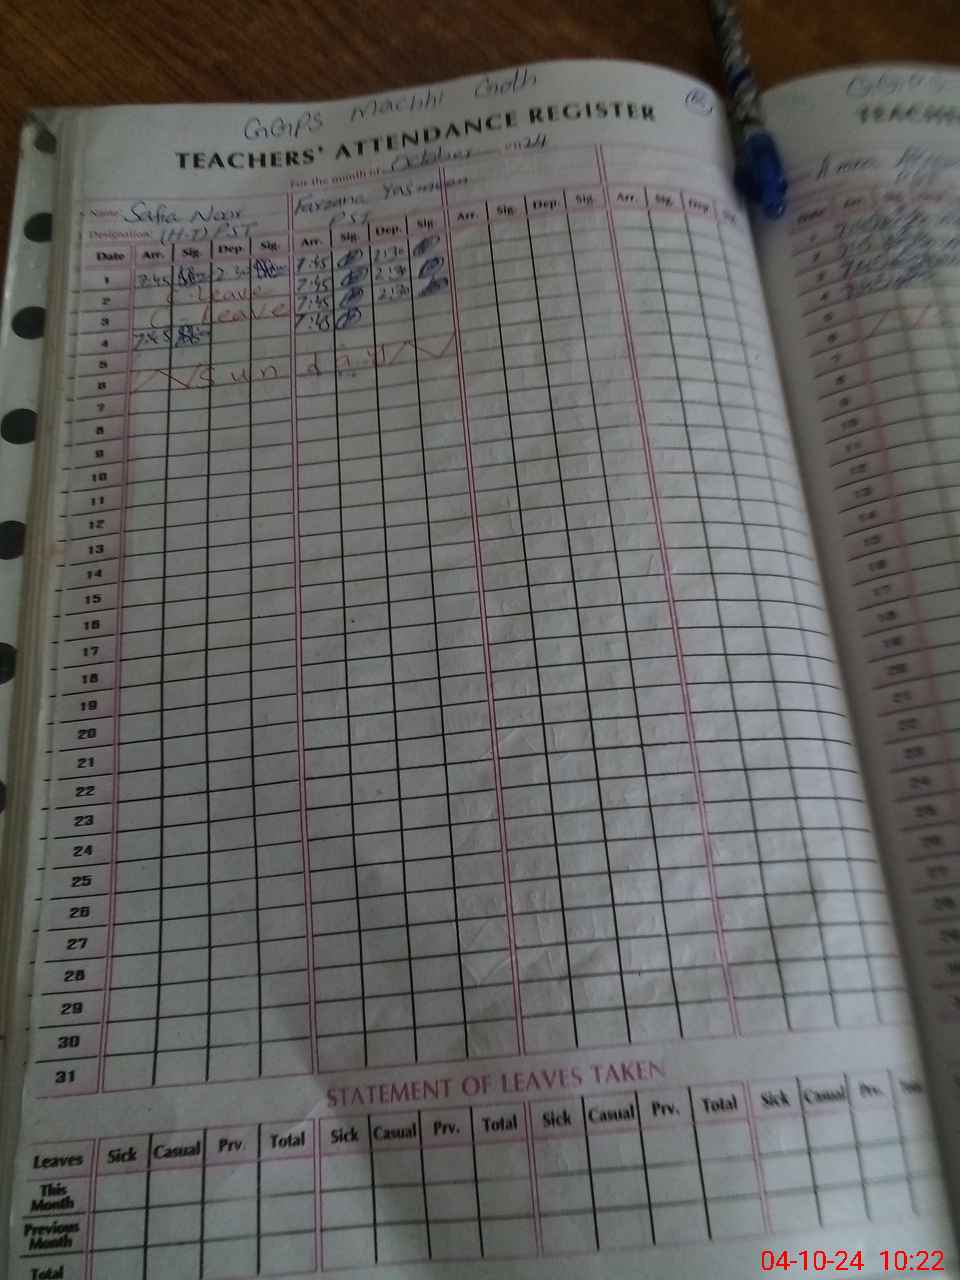 GGPS Machhi Goth
TEACHERS' ATTENDANCE REGISTER
For the month of October 2024
Name Safia Noor Farzana Yasmeen
Designation: (H-T) PST PST
Date Arr. Sig. Dep. Sig. Arr. Sig. Dep. Sig. Arr. Sig. Dep. Sig. Arr. Sig. Dep. Sig.
1 7:45 2:30 7:45 2:30
2 Leave 7:45 2:30
3 Leave 7:45 2:30
4 7:45 7:45
5
6 Sunday
7
8
9
10
11
12
13
14
15
16
17
18
19
20
21
22
23
24
25
26
27
28
29
30
31
STATEMENT OF LEAVES TAKEN
Leaves Sick Casual Prv. Total Sick Casual Prv. Total Sick Casual Prv. Total Sick Casual Prv.
This Month
Previous Month
Total
04-10-24 10:22